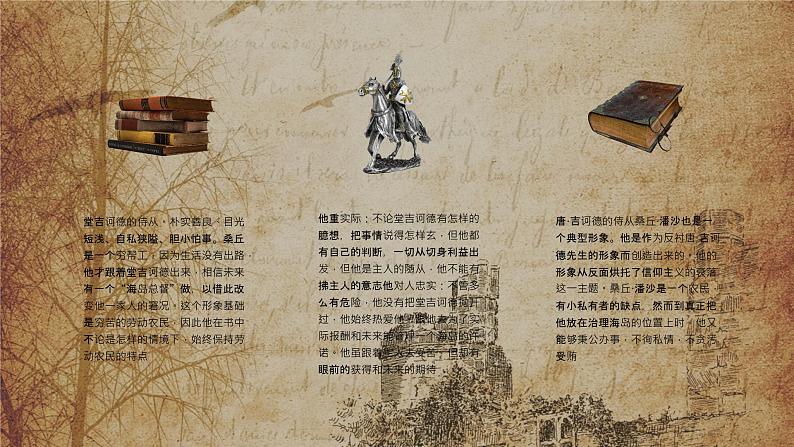 堂吉诃德的侍从，朴实善良、目光
短浅、自私狭隘、胆小怕事。桑丘
是一个穷帮工，因为生活没有出路
他才跟着堂吉诃德出来，相信未来
有一个“海岛总督”做，以借此改
变他一家人的窘况。这个形象基础
是穷苦的劳动农民，因此他在书中
不论是怎样的情境下，始终保持劳
动农民的特点
他重实际：不论堂吉诃德有怎样的
臆想，把事情说得怎样玄，但他都
有自己的判断，一切从切身利益出
发，但他是主人的随从，他不能有
拂主人的意志他对人忠实：不管多
么有危险，他没有把堂吉诃德抛开
过，他始终热爱他。跟他去为了实
际报酬和未来能管理一个海岛的许
诺。他虽跟着主人去受苦，但却有
眼前的获得和未来的期待
唐·吉诃德的侍从桑丘·潘沙也是一
个典型形象。他是作为反衬唐·吉诃
德先生的形象而创造出来的，他的
形象从反面烘托了信仰主义的衰落
这一主题。桑丘·潘沙是一个农民，
有小私有者的缺点，然而到真正把
他放在治理海岛的位置上时，他又
能够秉公办事，不徇私情，不贪污
受贿